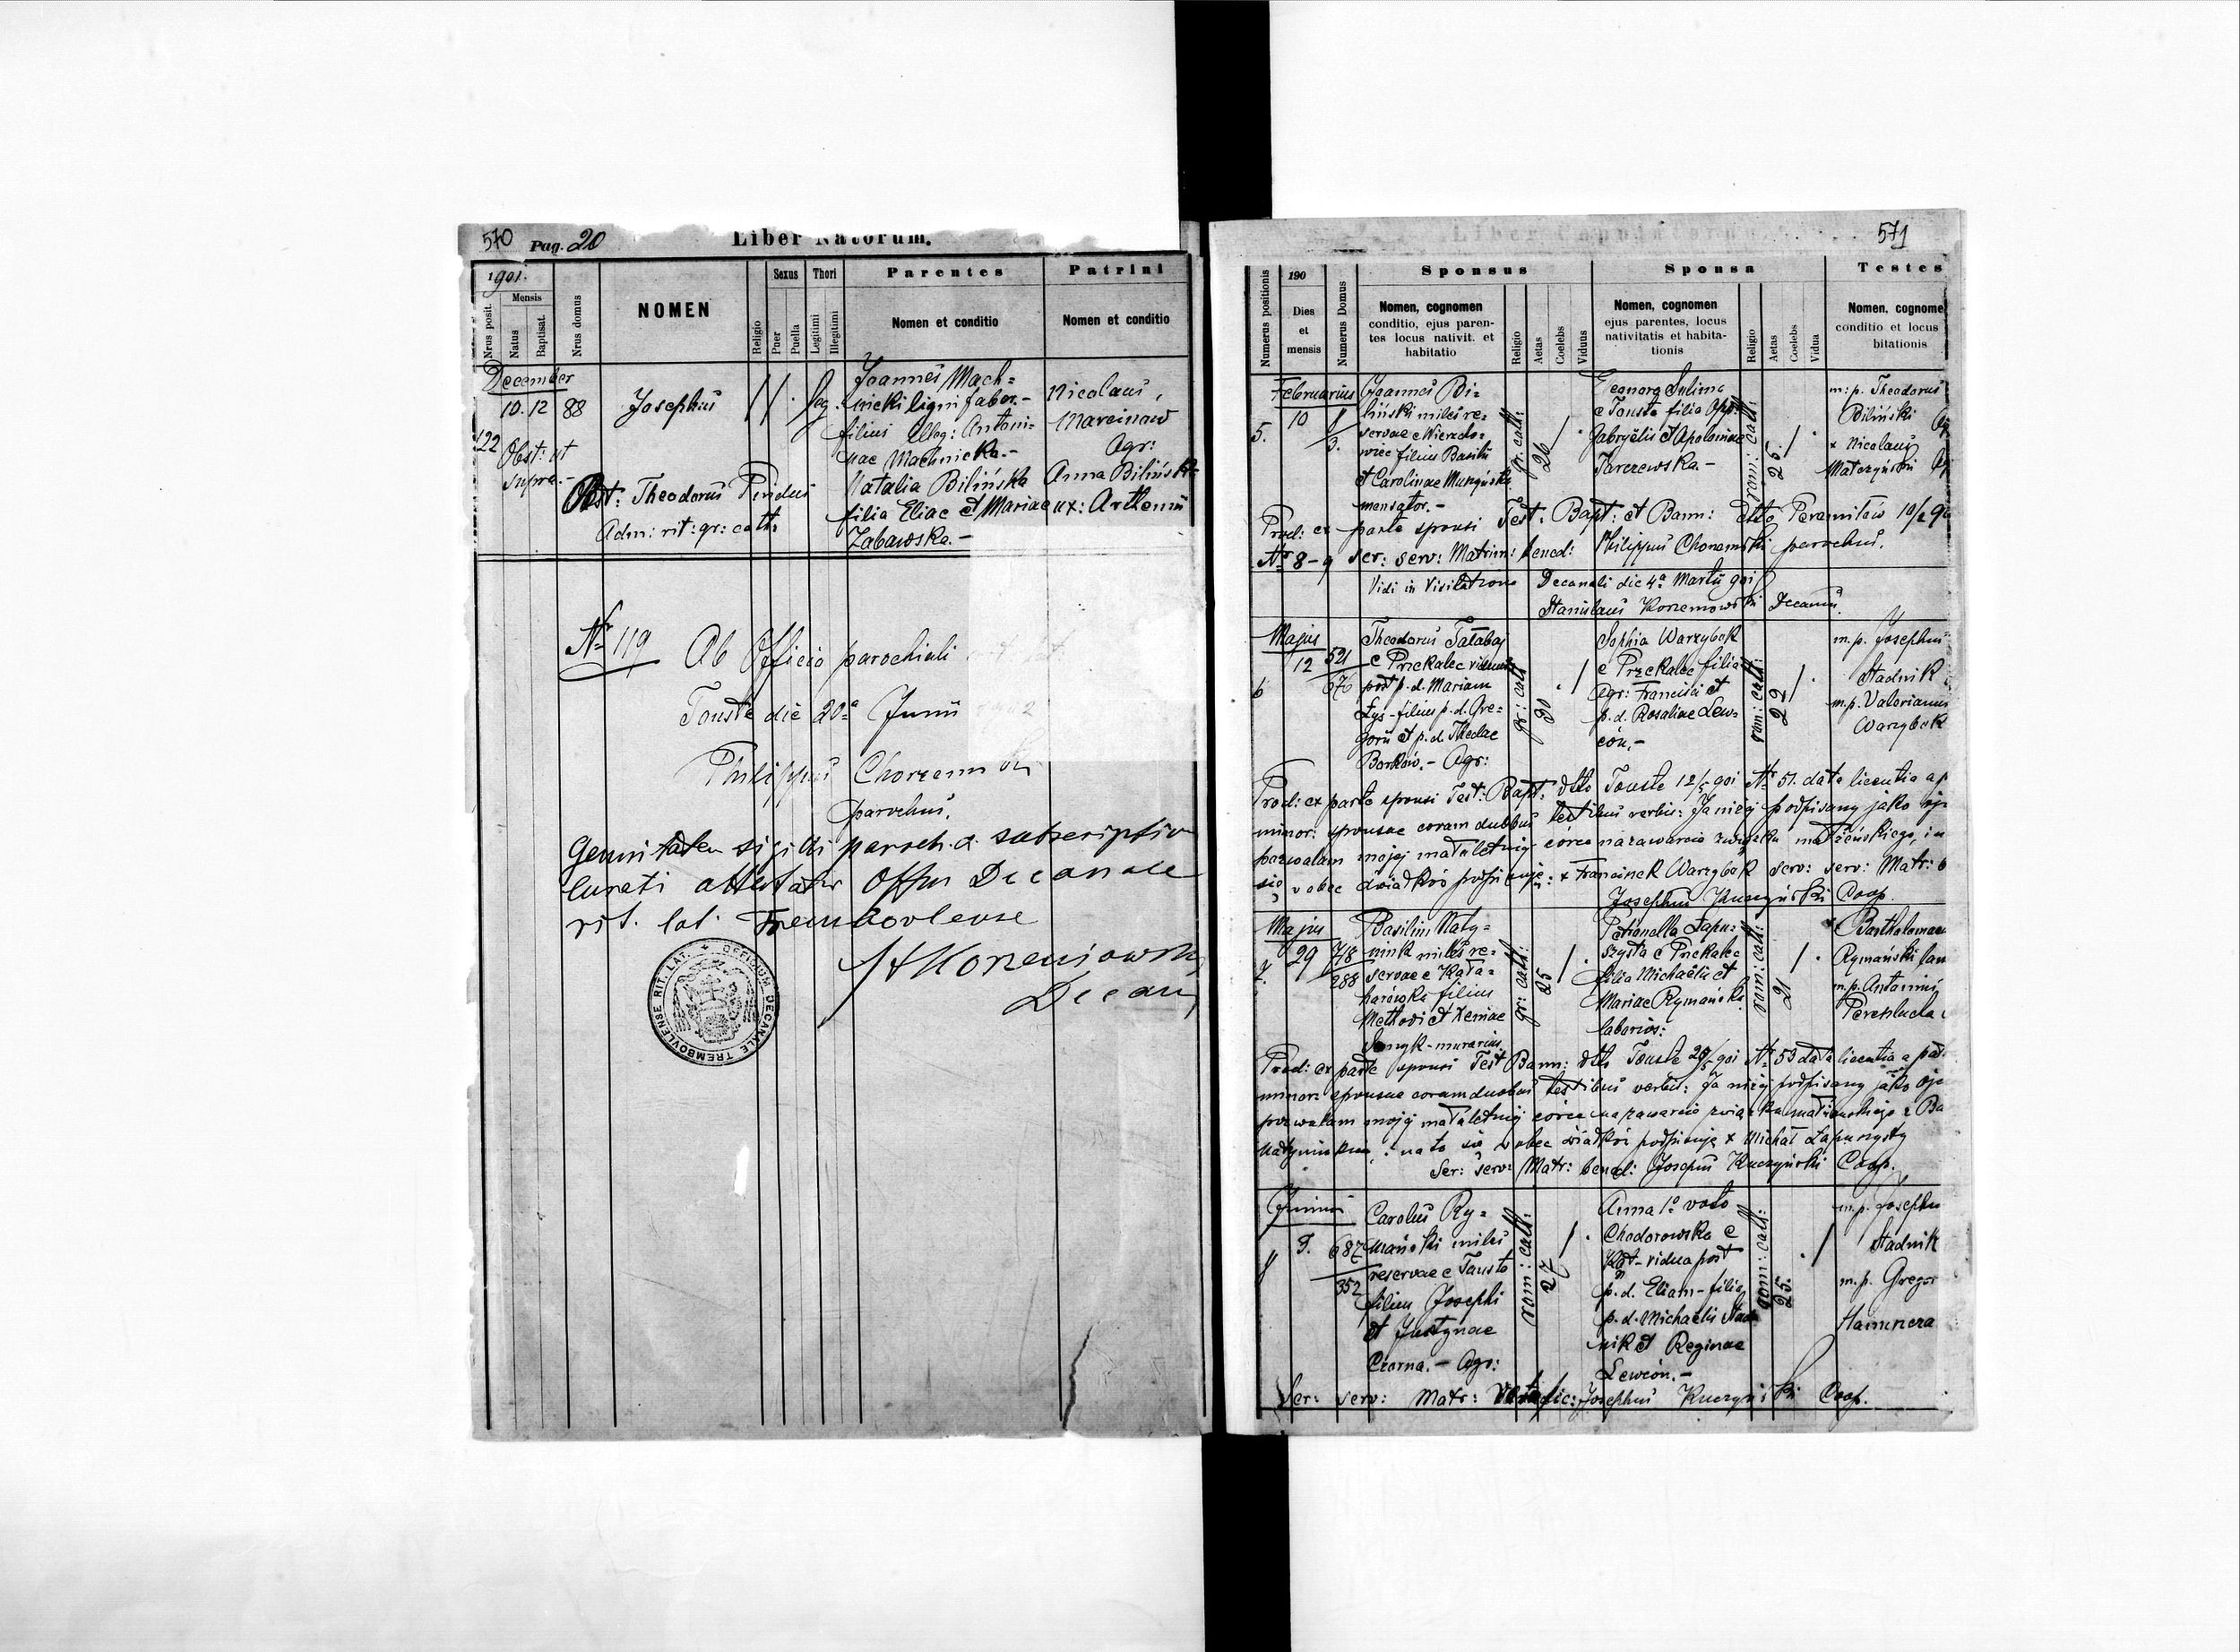 570 Pag. 20 Liber Natorum.
1901.
Nrus posit.
Mensis
Natus
Baptisat.
Nrus domus
NOMEN
Religio
Sexus
Puer
Puella
Thori
Legitimi
Illegitimi
Parentes
Nomen et conditio
Patrini
Nomen et conditio
December
10. 12 88
122
Obst: ut
supra.-
Josephus
leg.
Joannes Mach=
nicki ligni faber.-
filius illeg: Antoni=
nae Machnicka.-
Natalia Bilińska
filia Eliae et Mariae
Zabawska.-
Nicolaus
Marcinow
Agr:
Anna Bilińska
ux: Arthemii
Bapt: Theodorus
Adm: rit: gr: cath:
Nr 119
Ab Officio parochiali
Touste die 20a Junii
Philippus
parochus.
sigilli paroch. & subscriptio
Curati Offm Decanale
rit. lat. Trembovlense
St Korzeniowski
Decan
OFFICIUM DECANALE TREMBOVLENSE RIT. LAT.
571
Liber Copulatorum.
Numerus positionis
190
Dies
et
mensis
Numerus Domus
Sponsus
Nomen, cognomen
conditio, ejus paren-
tes locus nativit. et
habitatio
Religio
Aetas
Coelebs
Viduus
Sponsa
Nomen, cognomen
ejus parentes, locus
nativitatis et habita-
tionis
Religio
Aetas
Coelebs
Vidua
Testes
Nomen, cognome
conditio et locus
bitationis
Februarius
10
5.
3.
Joannes Bi=
liński miles re=
servae e Nierado=
wiec filius Basilii
et Carolinae
gr. cath:
26
Eleonora Sulima
e Touste filia
Gabryëlis et Apoloniae
Jarczewska.-
rom: cath:
26.
m: p. Theodorus
Biliński
+ Nicolaus
Prod: ex parte sponsi Test: Bapt: et Bann: dtto Peremilów 10/2 90
Nr 8-9 ser: serv: Matrim: bened: Philippus parochus.
Vidi in Visitatione Decanali die 4a Martii 901
Stanislaus Korzeniowski Decanus.
Majus
12
6
521
676
Theodorus Tatabaj
e Przekalec viduus
post p. d. Mariam
Łyś - filius p. d. Gre=
gorii et p. d. Theclae
Borków.- Agr:
gr: cath
30
Sophia Warzybok
e Przekalec filia
agr: Francisci et
p. d. Rosaliae Lew=
ców.-
rom: cath:
22
m. p. Josephus
Stadnik
m. p. Valerianus
Warzybok
Prod: ex parte sponsi Test: Bapt: dtto Touste 12/5 901 Nr 51. data licentia a p
minor: sponsae coram duobus testibus verbis: Ja niżej podpisany jako oj
pozwalam mojej małoletniej córce na zawarcie związku małżeńskiego, i n
się wobec świadków podpisuję: + Francisek Warzybok ser: serv: Matr: b
Josephus Kuczyński Coop.
Majus
29
7.
718
288
Basilius Naty=
niuk miles re=
servae e Kała=
harówka filius
Methodi et Xeniae
Semyk - murarius.
gr: cath:
25
Petronella Łapu=
szysta e Przekalec
filia Michaëlis et
Mariae Rymańska
laborios:
rom: cath:
21
+ Bartholomaeu
Rymański
m. p. Antonius
Prod: ex parte sponsi Test Bann: dtto Touste 29/5 901 Nr 53 data licentia a pat
minor: sponsae coram duobus testibus verbis: Ja niżej podpisany jako oj
pozwalam mojej małoletniej córce na zawarcie związku małżeńskiego z Ba
na to się wobec świadków podpisuję + Michał Łapuszysty
Ser: serv: Matr: bened: Josephus Kuczyński Coop.
Junius
3.
8
687
352
Carolus Ry=
mański miles
reservae e Touste
filius Josephi
et Justynae
Czarna.- Agr:
rom: cath:
27
Anna 1o voto
Chodorowska e
vidua post
p. d. Eliam - filia
p. d. Michaëlis Stad=
nik et Reginae
Lewców.-
rom: cath:
25.
m. p. Josephu
Stadnik
m. p. Gregor
Ser: serv: Matr: Josephus Kuczyński Coop.